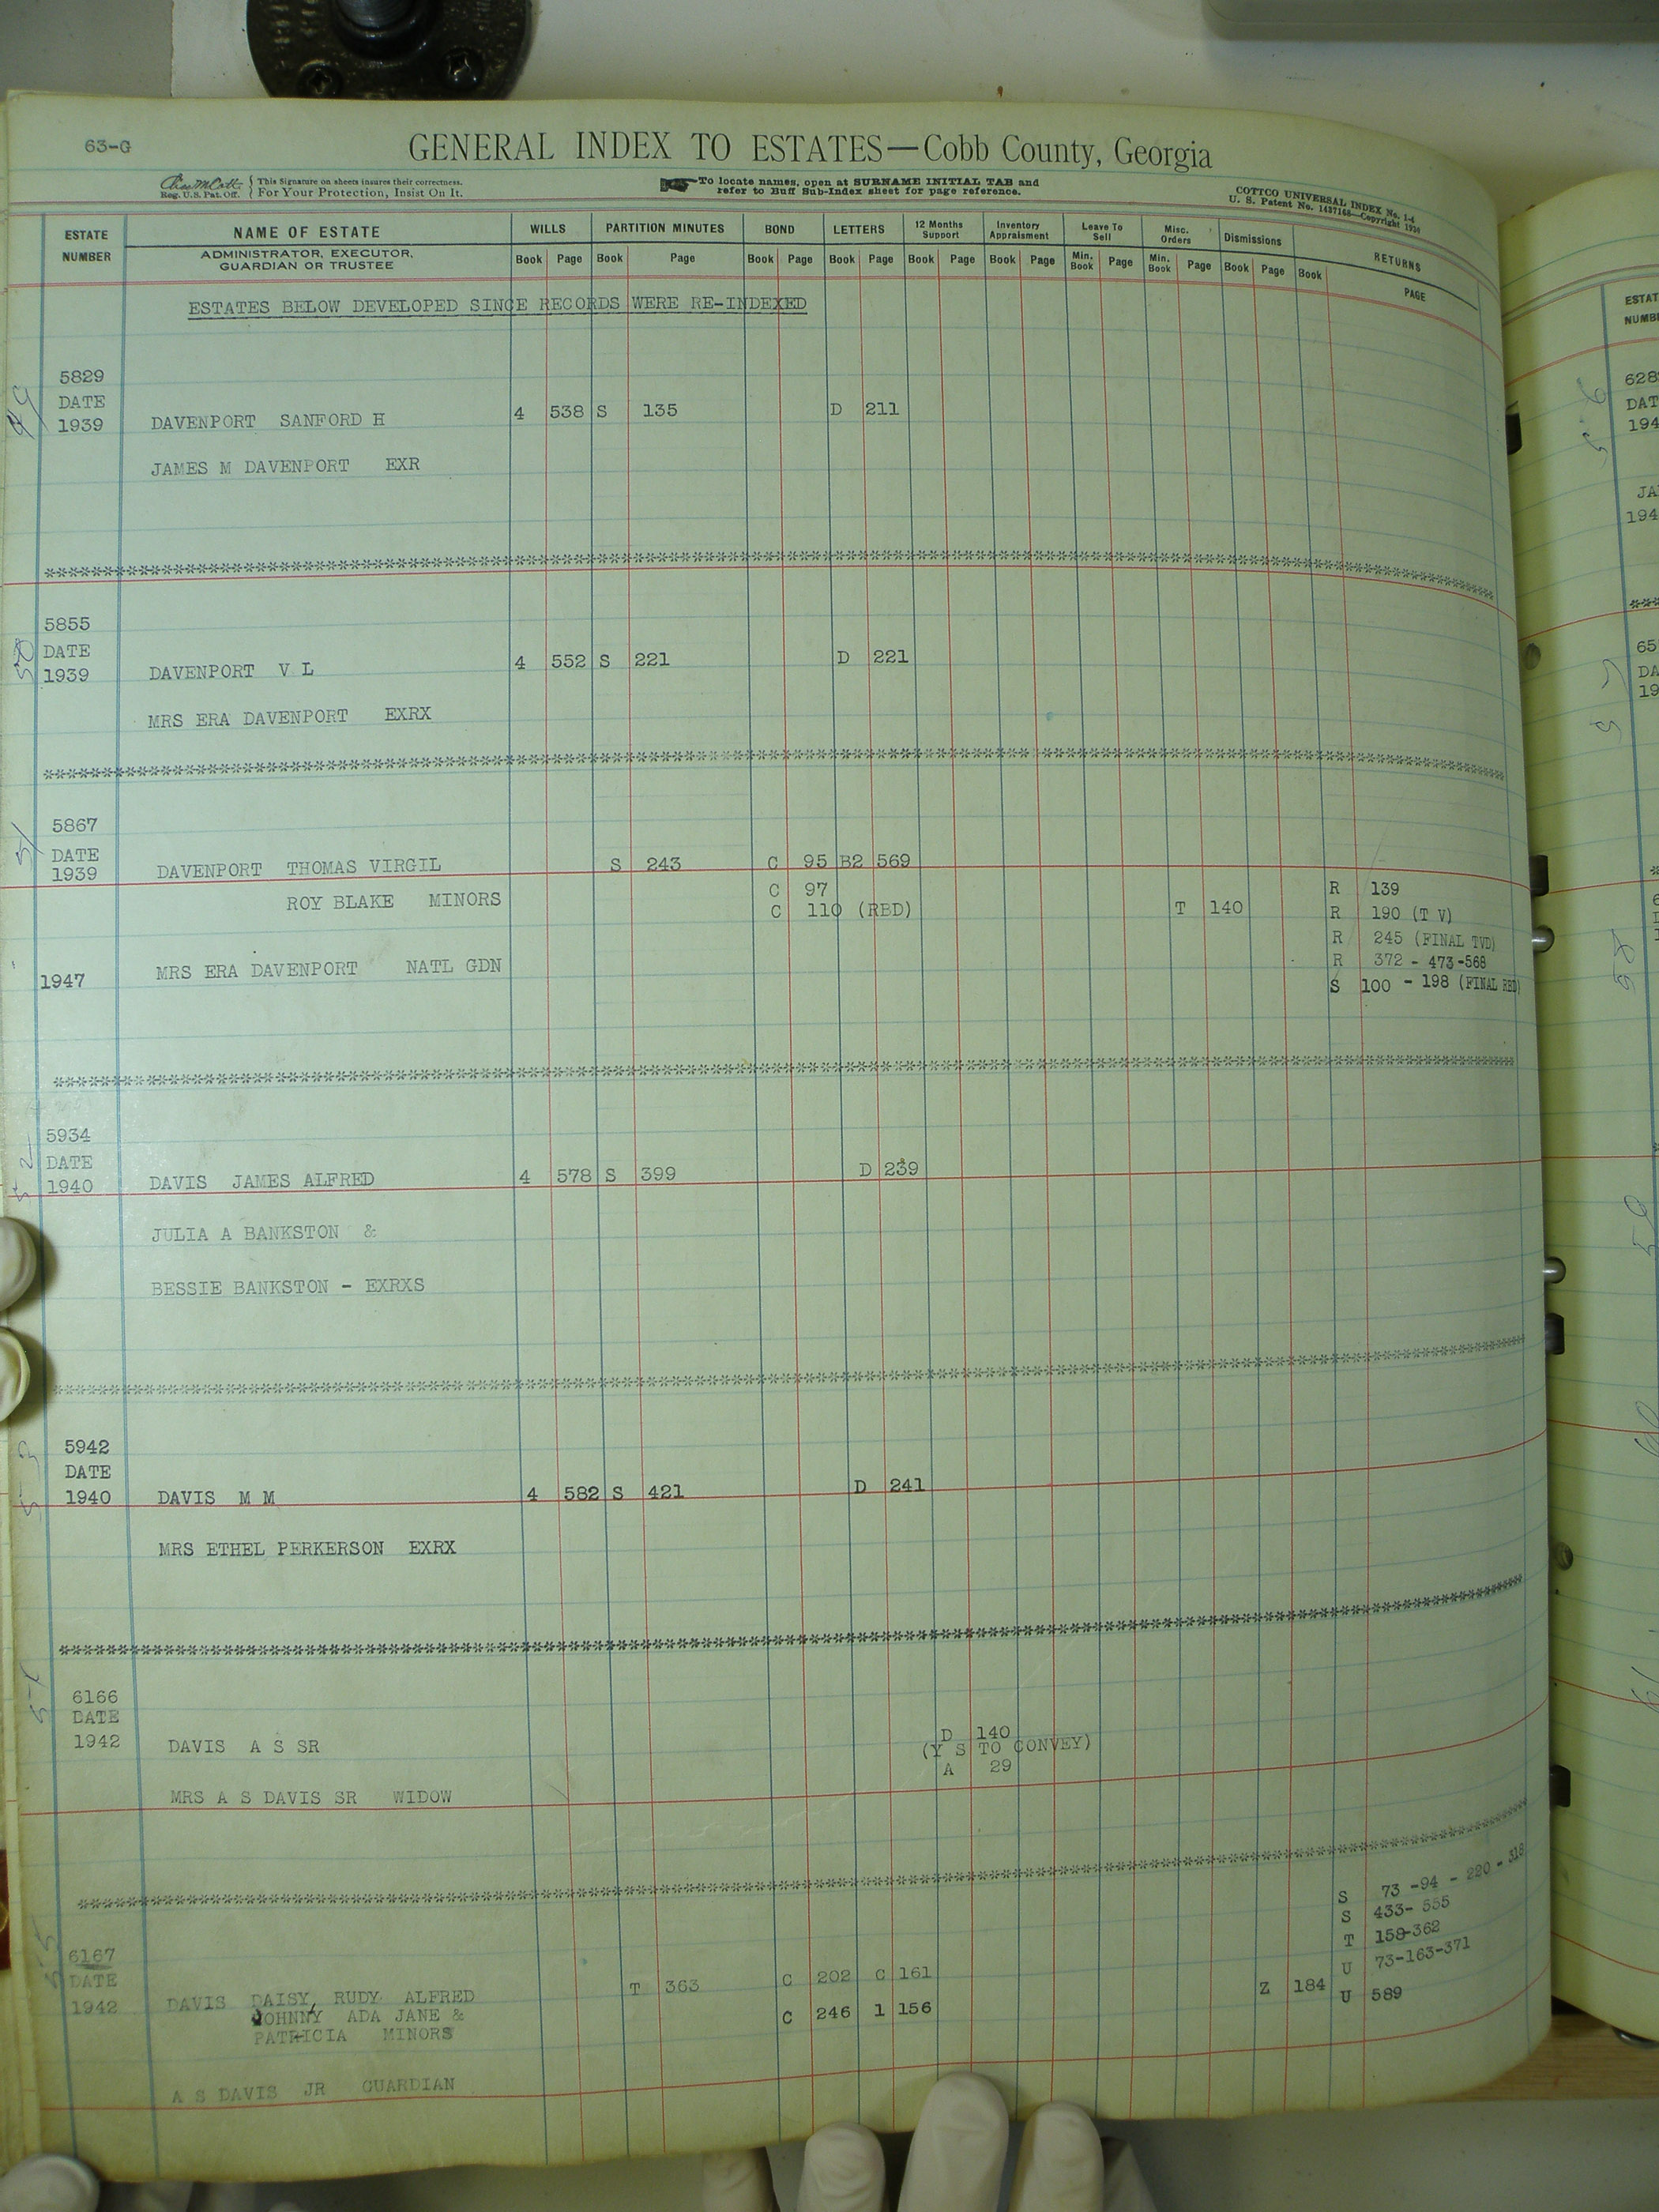 63-G
GENERAL INDEX TO ESTATES—Cobb County, Georgia
Reg. U.S. Pat. Off. { This Signature on sheets insures their correctness. For Your Protection, Insist On It.
To locate names, open at SURNAME INITIAL TAB and
refer to Buff Sub-Index sheet for page reference.
COTTCO UNIVERSAL INDEX No. 1-4
U. S. Patent No. 1437168—Copyright 1934
ESTATE NUMBER NAME OF ESTATE WILLS PARTITION MINUTES BOND LETTERS 12 Months Support Inventory Appraisment Leave To Sell Misc. Orders Dismissions RETURNS
ADMINISTRATOR, EXECUTOR, GUARDIAN OR TRUSTEE Book Page Book Page Book Page Book Page Book Page Book Page Min. Book Page Min. Book Page Book Page Book PAGE
ESTATES BELOW DEVELOPED SINCE RECORDS WERE RE-INDEXED
49
5829
DATE
1939 DAVENPORT SANFORD H 4 538 S 135 D 211
JAMES M DAVENPORT EXR
50
5855
DATE
1939 DAVENPORT V L 4 552 S 221 D 221
MRS ERA DAVENPORT EXRX
51
5867
DATE
1939 DAVENPORT THOMAS VIRGIL S 243 C 95 B2 569
C 97 R 139
ROY BLAKE MINORS C 110 (RBD) T 140 R 190 (T V)
R 245 (FINAL TVD)
MRS ERA DAVENPORT NATL GDN R 372 - 473-568
1947 S 100 - 198 (FINAL RBD)
52
5934
DATE
1940 DAVIS JAMES ALFRED 4 578 S 399 D 239
JULIA A BANKSTON &
BESSIE BANKSTON - EXRXS
53
5942
DATE
1940 DAVIS M M 4 582 S 421 D 241
MRS ETHEL PERKERSON EXRX
6166
DATE
1942 DAVIS A S SR D 140
(Y S TO CONVEY)
A 29
MRS A S DAVIS SR WIDOW
S 73 -94 - 220 - 318
S 433- 555
T 158-362
55
6167 U 73-163-371
DATE
1942 DAVIS DAISY, RUDY ALFRED T 363 C 202 C 161 Z 184 U 589
JOHNNY ADA JANE & C 246 1 156
PATRICIA MINORS
A S DAVIS JR GUARDIAN